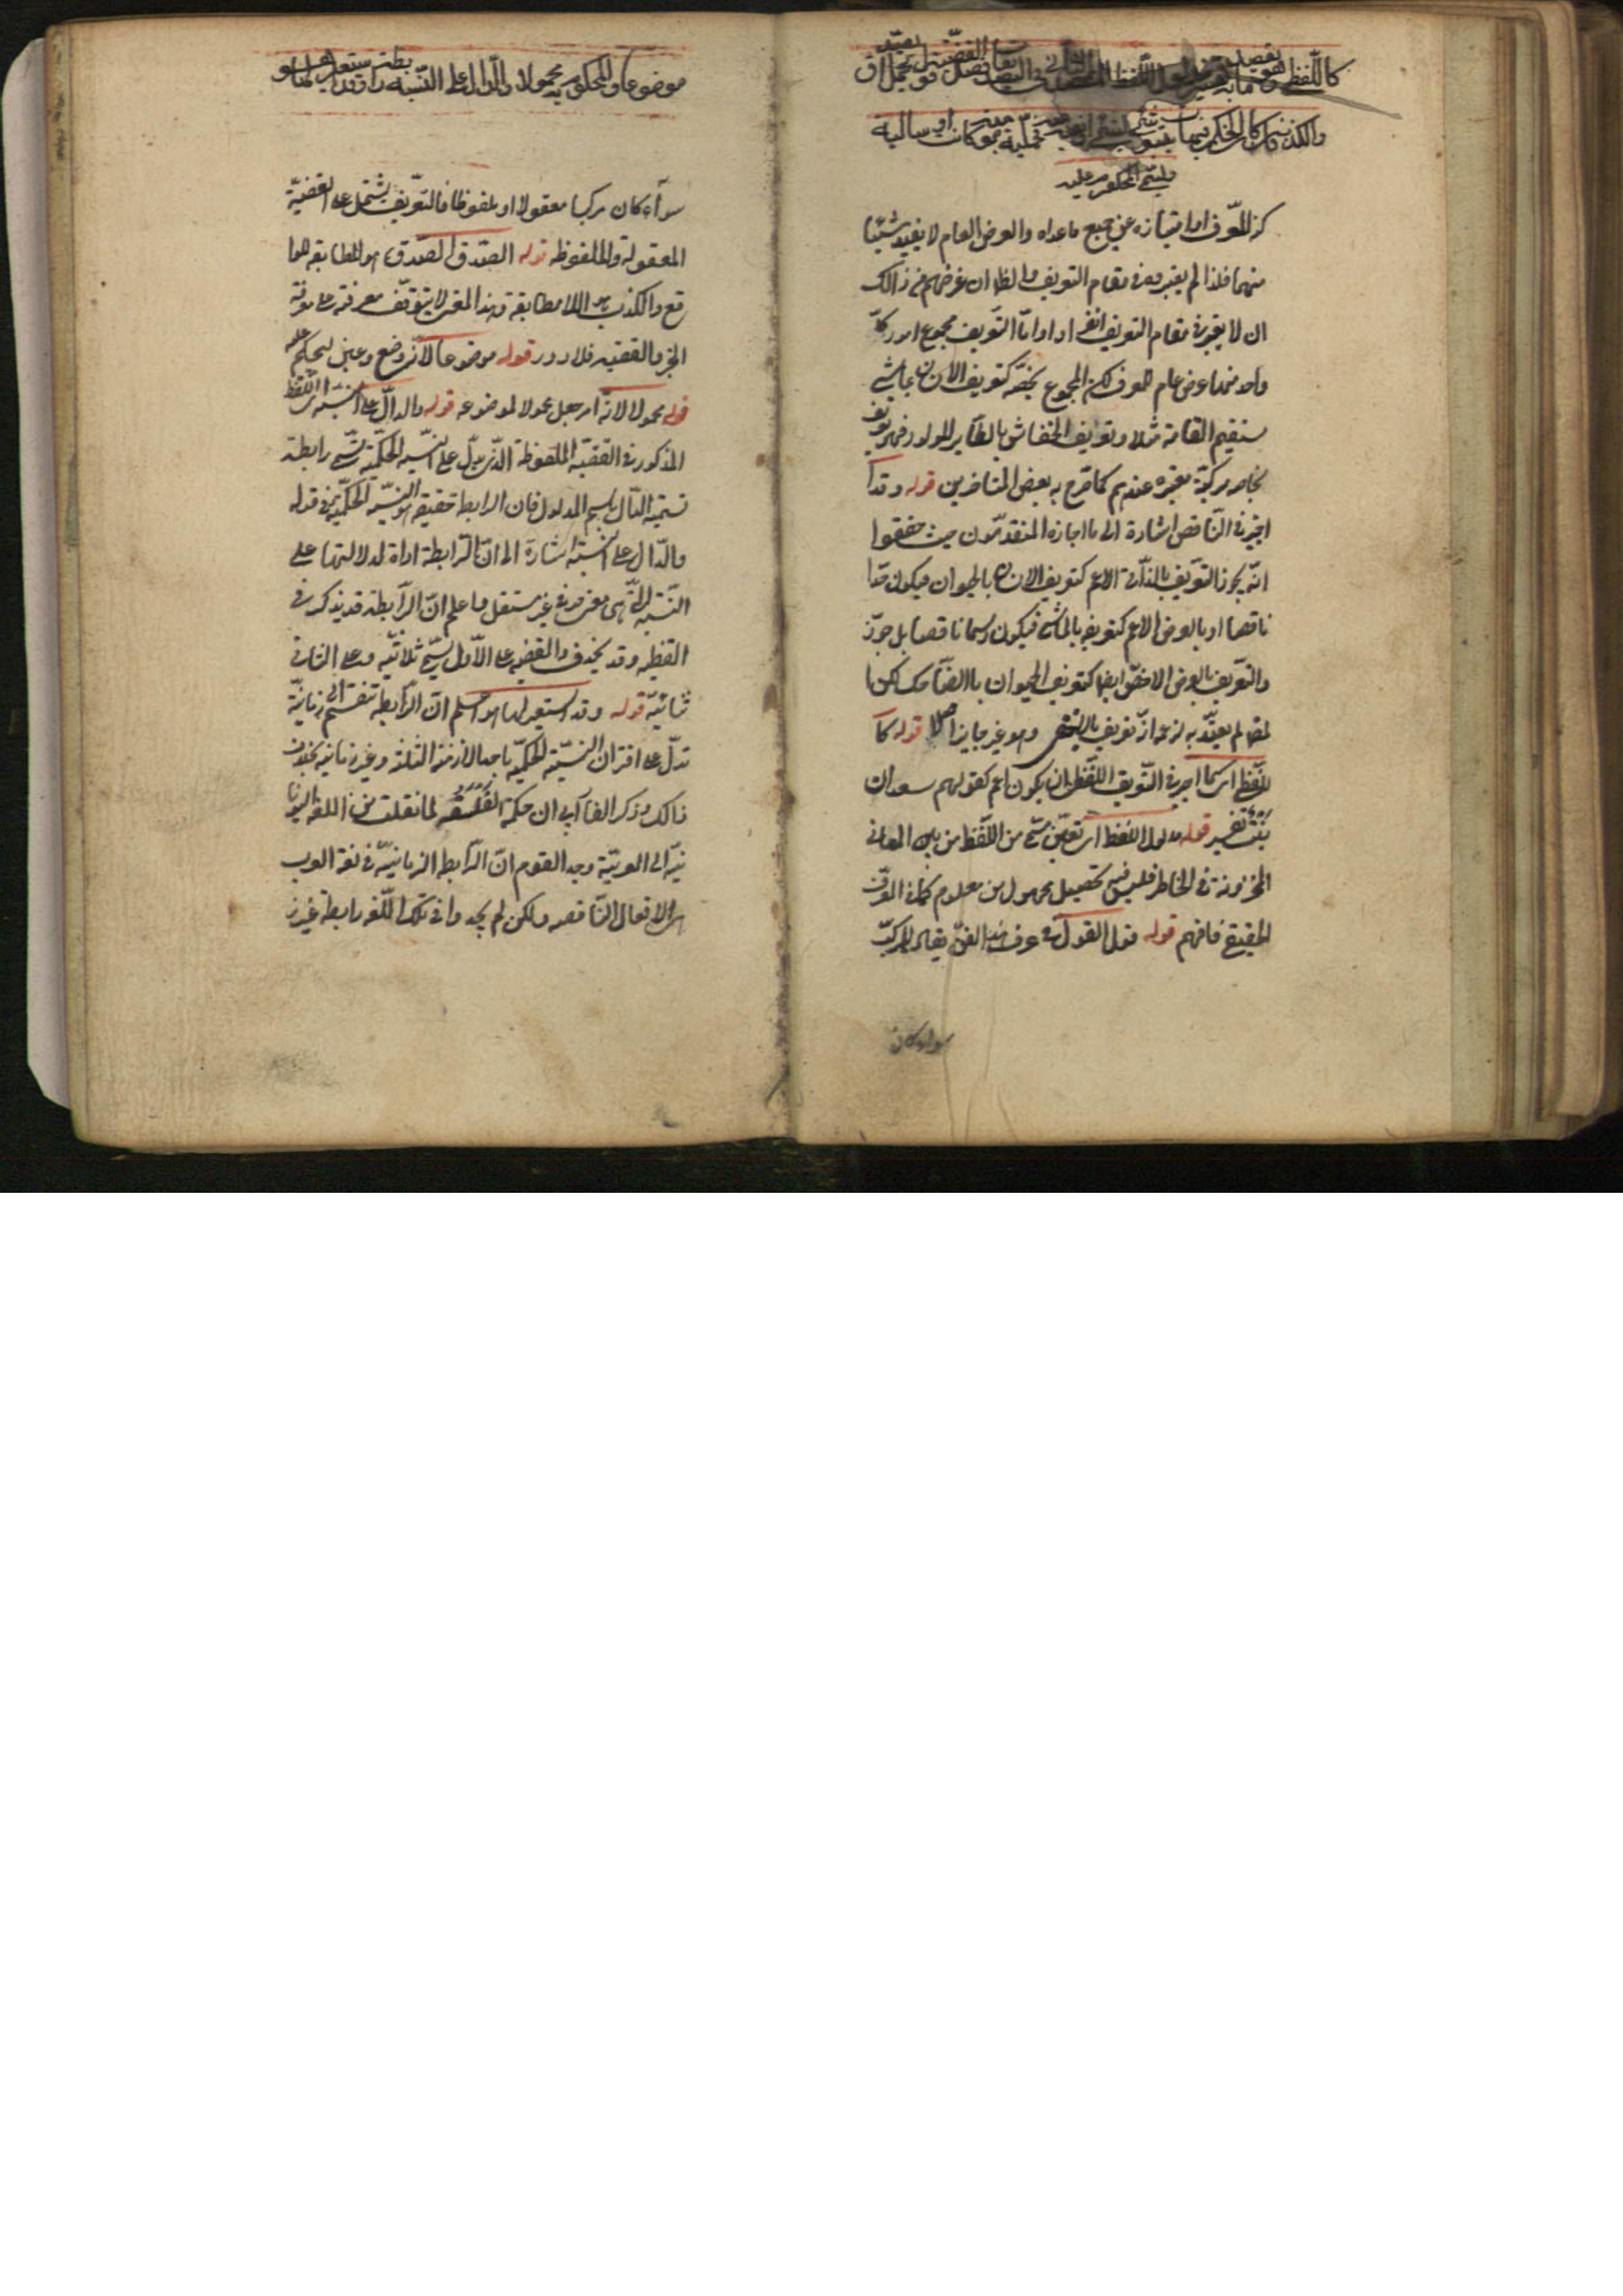 كاللفظي وهو ما يقصد به تفسير مدلول اللفظ فصل في التصديقات القضية قول يحتمل الصدق
والكذب فان كان الحكم فيها بثبوت شيء لشيء او نفيه عنه فحملية موجبة او سالبة
ويسمى المحكوم عليه
كنه المعرف او امتيازه عن جميع ماعداه والعرض العام لا يفيد شيئا
منهما فلذا لم يعتبروه في مقام التعريف والظ ان غرضهم من ذالك
ان لا يعتبر في مقام التعريف انفرادا واما التعريف بمجموع امور كل
واحد منها عرض عام للمعرف لكن المجموع يخصه كتعريف الانسان بماشي
مستقيم القامة مثلا وتعريف الخفاش بالطاير الولود فهو تعريف
بخاصه مركبة معتبره عندهم كما صرح به بعض المتاخرين قوله وقد
اجيز في الناقص اشارة الى ما اجازه المتقدمون حيث حققوا
انه يجوز التعريف بالذاتي الاعم كتعريف الانسان بالحيوان فيكون حدا
ناقصا او بالعرض الاعم كتعريفه بالماشي فيكون رسما ناقصا بل جوز
والتعريف بالعرض الاخص ايضا كتعريف الحيوان بالضاحك لكن ا
لمص لم يعتد به لزعمه انه تعريف بالاخفى وهو غير جايز اصلا قوله كا
للفظي اي كما اجيز في التعريف اللفظي ان يكون اعم كقولهم سعدان
نبت قوله تفسير مدلول اللفظ اي تعيين مسمى من اللفظ من بين المعاني
المخزونة في الخاطر فليس فيه تحصيل مجهول من معلوم كما في المعرف
الحقيقي فافهم قوله قول القول في عرف هذا الفن يقال للمركب
سواء كان
موضوعا والمحكوم به محمولا والدال على النسبة رابطة وقد استعير لها هو
سواء كان مركبا معقولا او ملفوظا فالتعريف يشتمل على القضية
المعقولة والملفوظه قوله الصدق الصدق هو المطابقه للوا
قع والكذب هو اللا مطابقة وهذا المعنى لا يتوقف معرفته على معرفة
الخبر والقضيه فلا دور قوله موضوعا لانه وضع وعين ليحكم عليه
قوله محمولا لانه امر جعل محمولا لموضوعه قوله والدال على النسبة اي اللفظ
المذكور في القضيه الملفوظة الذي يدل على النسبه الحكمية يسمى رابطة
تسمية الدال باسم المدلول فان الرابطة حقيقة هو النسبه الحكمية وفي قوله
والدال على النسبة اشارة الى ان الرابطة اداة لدلالتها على
النسبه التي هي معنى حرفي غير مستقل واعلم ان الرابطة قد يذكر في
القضيه وقد يحذف والقضيه على الاول يسمى ثلاثيه وعلى الثاني
ثنائيه قوله وقد استعير لها هو اعلم ان الرابطه تنقسم الى زمانية
تدل على اقتران النسبه الحكميه باحد الازمنه الثلثة وغير زمانيه بخلاف
ذالك وذكر الفارابي ان حكمة الفلسفه لما نقلت من اللغه اليونا
نيه الى العربية وجد القوم ان الرابطه الزمانيه في لغة العرب
هي الافعال الناقصه ولكن لم يجدوا في تلك اللغه رابطه غير ز